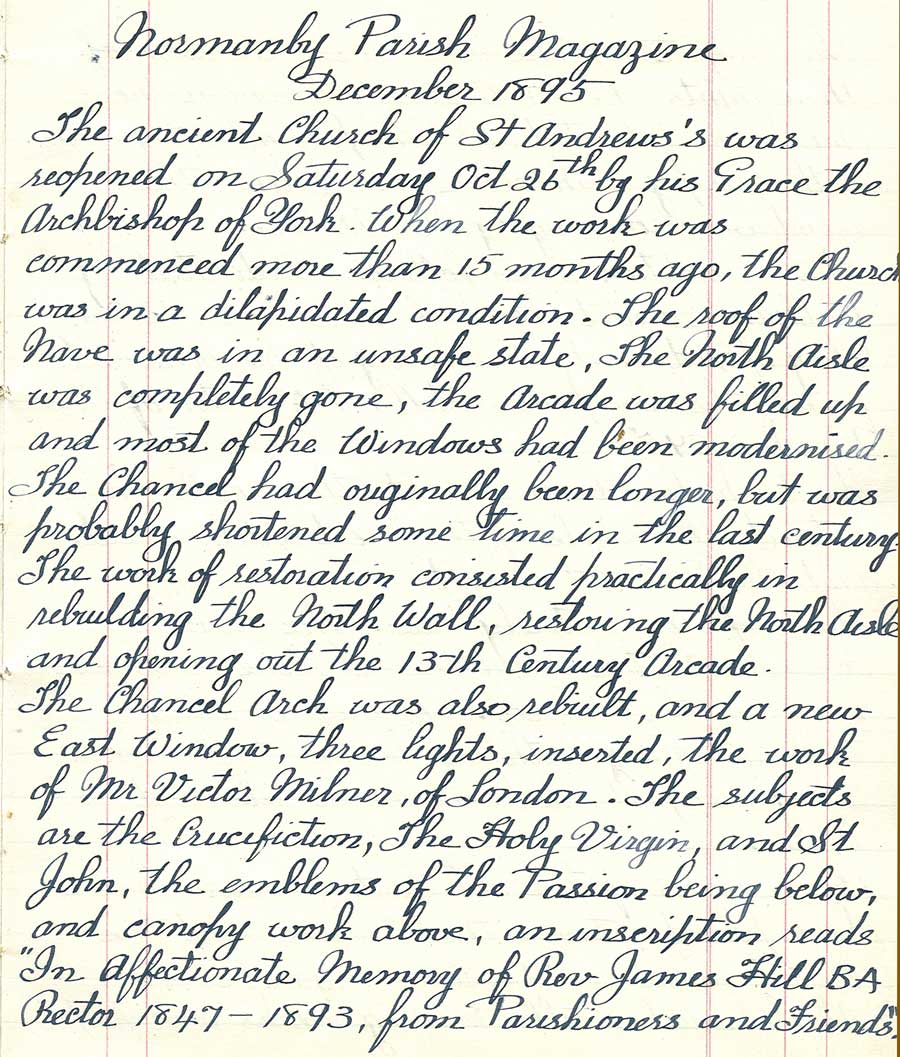 Normanby Parish Magazine
December 1895
The ancient Church of St Andrews's was
reopened on Saturday Oct 26th by his Grace the
Archbishop of York. When the work was
commenced more than 15 months ago, the Church
was in a dilapidated condition. The roof of the
Nave was in an unsafe state, The North Aisle
was completely gone, the Arcade was filled up
and most of the Windows had been modernised.
The Chancel had originally been longer, but was
probably shortened some time in the last century.
The work of restoration consisted practically in
rebuilding the North Wall, restoring the North Aisle
and opening out the 13th Century Arcade.
The Chancel Arch was also rebuilt, and a new
East Window, three lights, inserted, the work
of Mr Victor Milner, of London. The subjects
are the Crucefiction, The Holy Virgin, and St
John, the emblems of the Passion being below,
and canopy work above, an inscription reads
"In Affectionate Memory of Rev James Hill BA
Rector 1847 - 1893, from Parishioners and Friends".